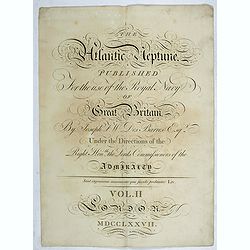 THE
Atlantic Neptune,
PUBLISHED
For the use of the Royal Navy
OF
Great Britain
By Joseph F. W. Des Barres Esq.
Under the Directions of the
Right Honble. the Lords Commissioners of the
ADMIRALTY
VOL. II
LONDON
MDCCLXXVII.